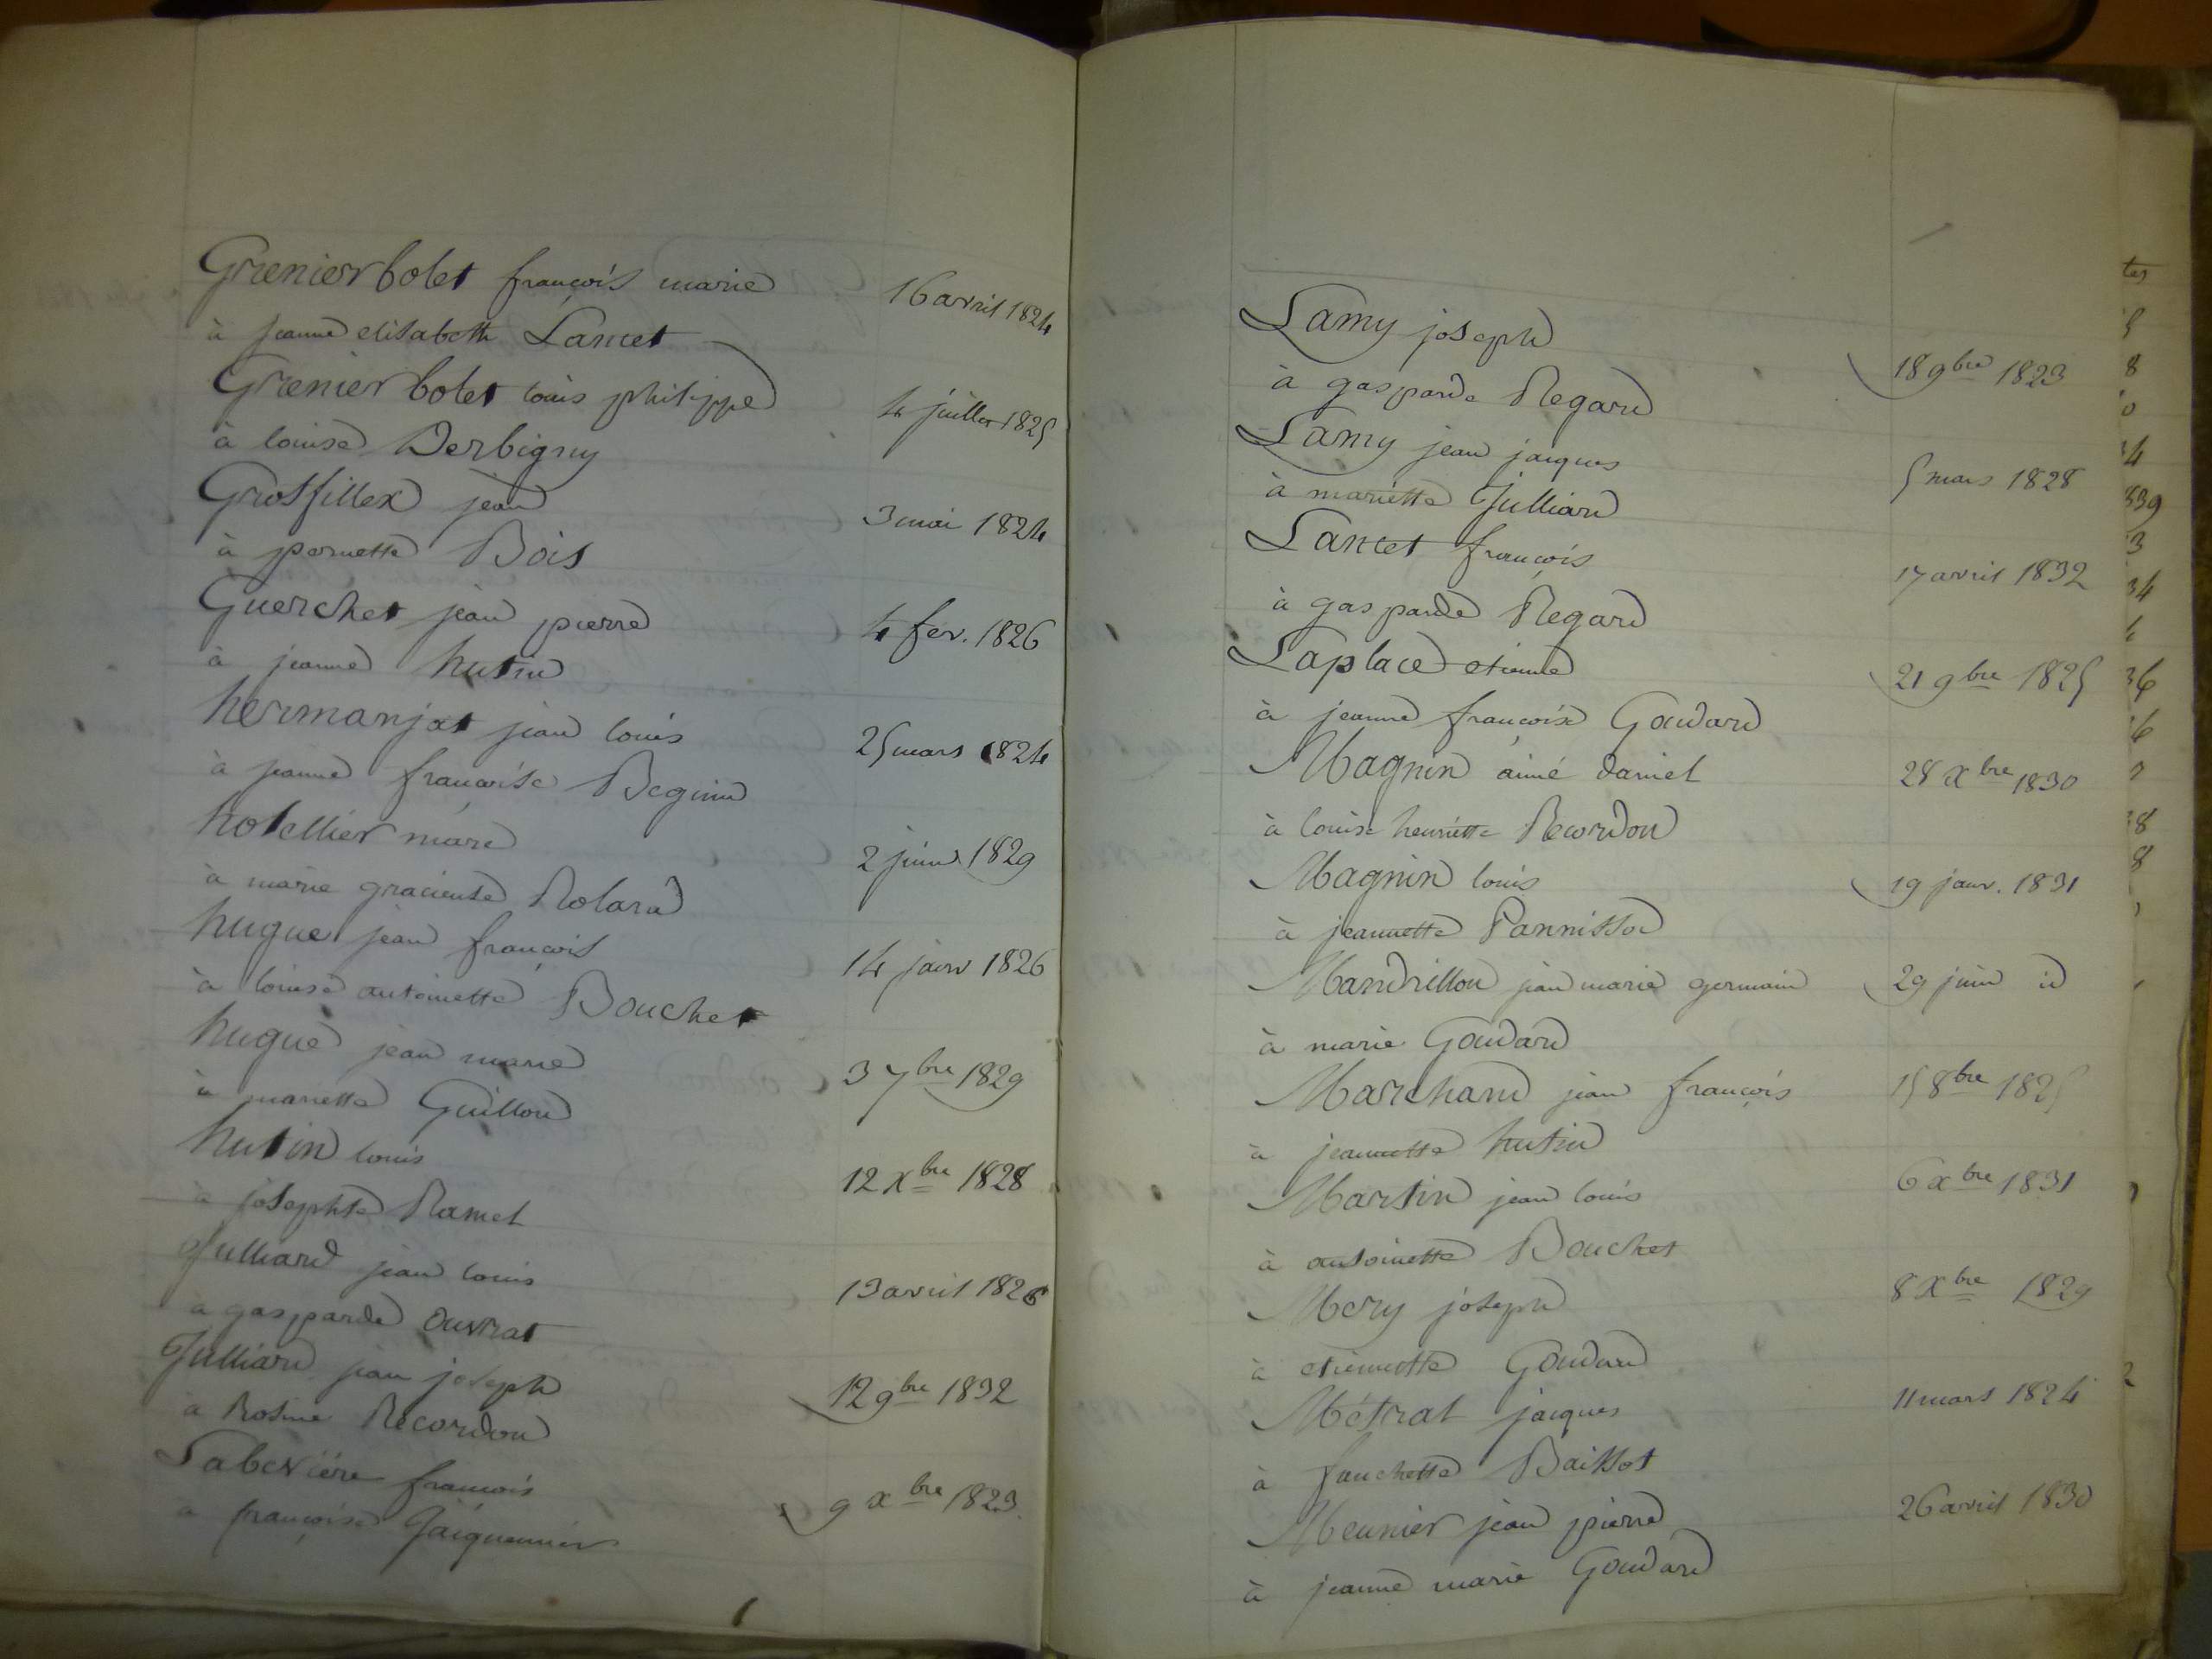 Grenier bolet françois marie 16 avril 1824
à jeanne elisabeth Lancet
Grenier bolet louis philippe 4 juillet 1825
à louise Derbigny
Grosfillex jean 3 mai 1824
à pernette Bois
Guerchet jean pierre 4 fév. 1826
à jeanne hutin
hermanjat jean louis 25 mars 1824
à jeanne françoise Beginin
hotellier marc 2 juin 1829
à marie gracieuse Roland
hugue jean françois 14 janv 1826
à louise antoinette Bouchet
hugue jean marie 3 7bre 1829
à mariette Guillon
hutin louis 12 Xbre 1828
à josephte Ramel
Julliard jean louis 13 avril 1826
à gasparde ouvrat
Julliard jean joseph 12 9bre 1832
à Rosine Recordon
Labevière françois 9 xbre 1823
à françoise Jaiquemier
Lamy joseph 18 9bre 1823
à gasparde Regard
Lamy jean jacques 5 mars 1828
à mariette Julliard
Lancet françois 17 avril 1832
à gasparde Regard
Laplace etienne 21 9bre 1825
à jeanne françoise Goudard
Magnin aimé daniel 28 Xbre 1830
à louise henriette Recordon
Magnin louis 19 janv. 1831
à jeannette Pannissod
Mandrillon jean marie germain 29 juin id
à marie Goudard
Marchand jean françois 15 8bre 1825
à jeannette hutin
Martin jean louis 6 xbre 1831
à antoinette Bouchet
Mery joseph 8 Xbre 1829
à etiennette Goudard
Métral jacques 11 mars 1824
à fanchette Baissot
Meunier jean pierre 26 avril 1830
à jeanne marie Goudard